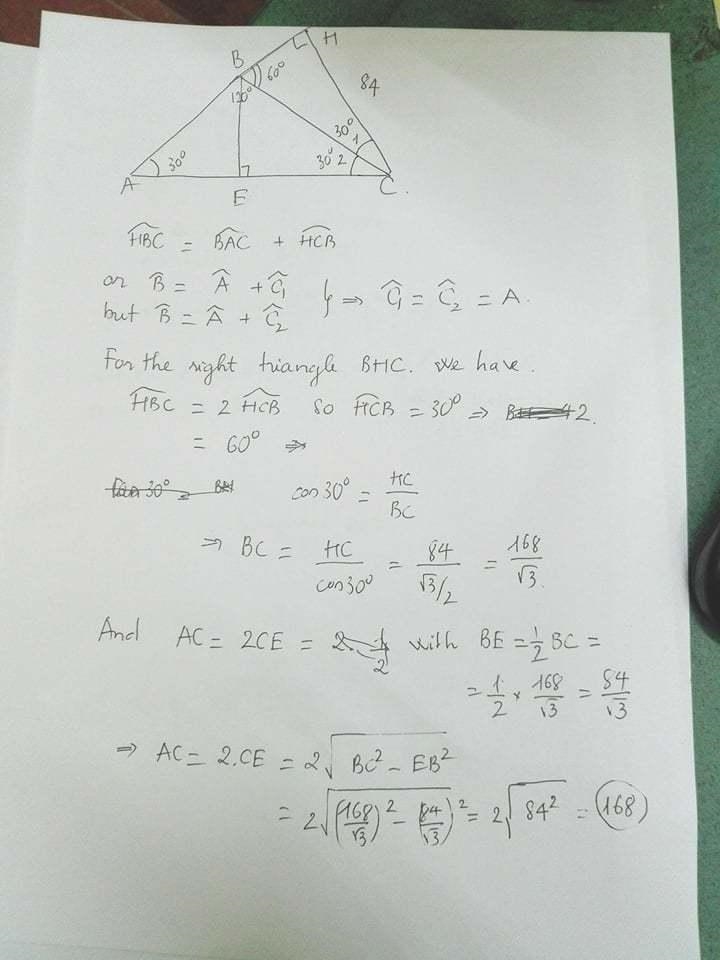 H
B
60°
84
120°
30° 1
A
30°
30° 2
C.
E
HBC = BAC + HCB
or B = A + C1
but B = A + C2
} ⇒ C1 = C2 = A.
For the right triangle BHC. We have.
HBC = 2 HCB so HCB = 30° ⇒
= 60° ⇒
cos 30° = HC/BC
⇒ BC = HC/cos30° = 84/(√3/2) = 168/√3.
And AC = 2CE = with BE = 1/2 BC =
= 1/2 × 168/√3 = 84/√3
⇒ AC = 2.CE = 2√(BC² - EB²)
= 2√((168/√3)² - (84/√3)²) = 2√(84²) = 168